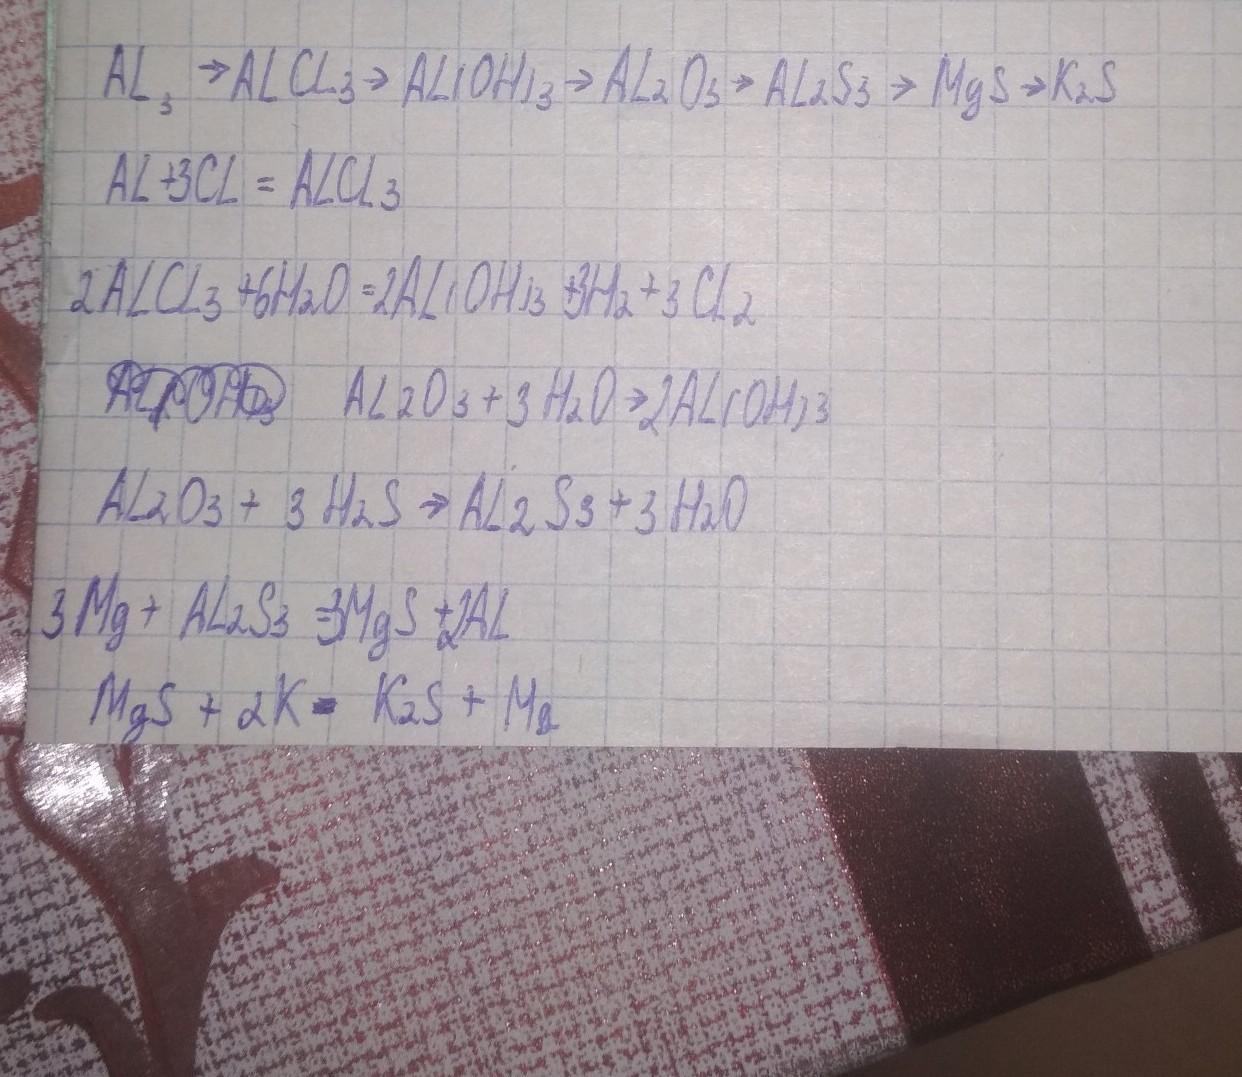 AL₃ → ALCL₃ → AL(OH)₃ → AL₂O₃ → AL₂S₃ → MgS → K₂S
AL+3CL = ALCL₃
2ALCL₃ +6H₂O =2AL(OH)₃ +3H₂ + 3CL₂
AL₂O₃ + 3H₂O → 2AL(OH)₃
AL₂O₃ + 3H₂S → AL₂S₃ + 3H₂O
3Mg + AL₂S₃ =3MgS +2AL
MgS + 2K = K₂S + Mg